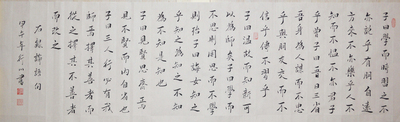 子曰學而時習之不
亦說乎有朋自遠
方來不亦樂乎人不
知而不慍不亦君子
乎曾子曰吾日三省
吾身為人謀而不忠
乎與朋友交而不
信乎傳不習乎
子曰溫故而知新可
以為師矣子曰學而
不思則罔思而不學
則殆子曰誨女知之
乎知之為知之不知
為不知是知也
子曰見賢思齊焉
見不賢而內自省也
子曰三人行必有我
師焉擇其善者而
從之擇其不善者
而改之
論語句
甲午年 書